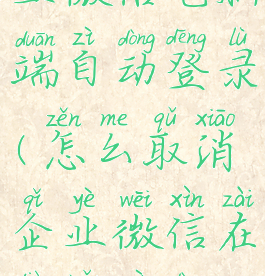 duān zì dòng dēng lù
端自动登录
zěn me qǔ xiāo
(怎么取消
qǐ yè wēi xìn zài
企业微信在